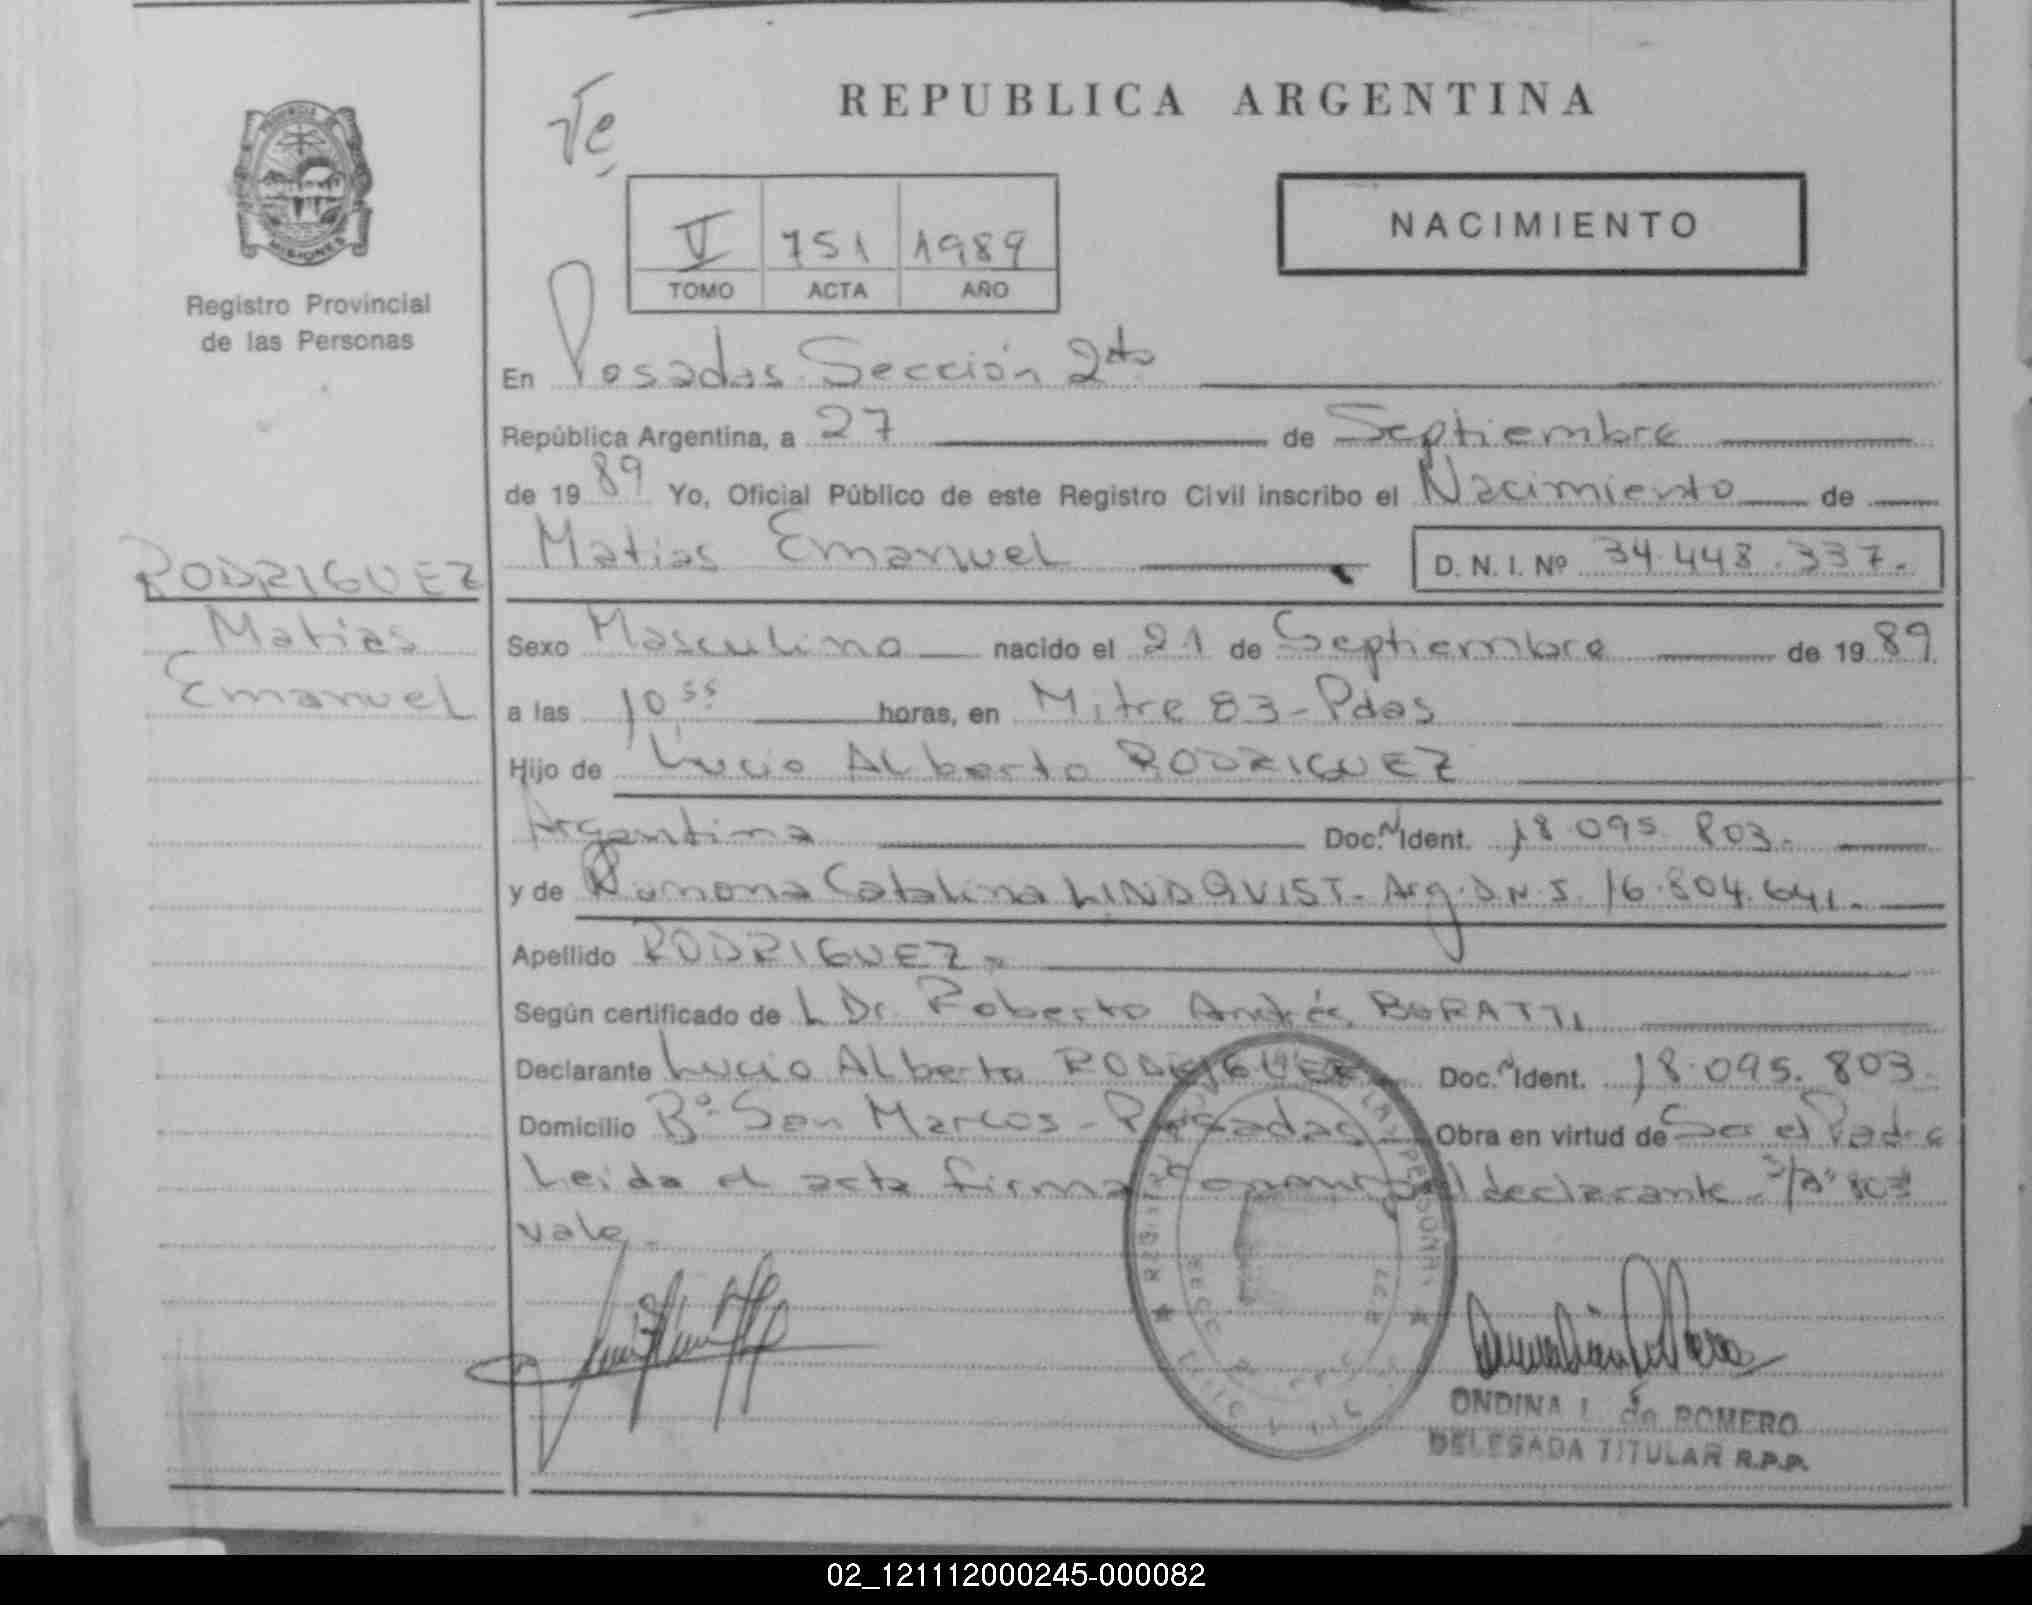 REPUBLICA ARGENTINA
NACIMIENTO
V 751 1989
TOMO ACTA AÑO
PROVINCIA DE
MISIONES
Registro Provincial
de las Personas
RODRIGUEZ
Matias
Emanuel
En Posadas Sección 2da
República Argentina, a 27 de Septiembre
de 1989 Yo, Oficial Público de este Registro Civil inscribo el Nacimiento de
Matias Emanuel D. N. I. Nº 34.448.337.
Sexo Masculino nacido el 21 de Septiembre de 1989
a las 10,55 horas, en Mitre 83 - Pdas
Hijo de Lucio Alberto RODRIGUEZ
Argentina Doc. Ident. 18.095.803.
y de Ramona Catalina LINDQUIST - Arg. D.N.I. 16.804.641.
Apellido RODRIGUEZ
Según certificado de L Dr. Roberto Andrés
Declarante Lucio Alberto RODRIGUEZ Doc. Ident. 18.095.803
Domicilio Bº San Marcos - Posadas Obra en virtud de Ser el Padre
Leida el acta firma declarante. S/R "803"
vale.
ONDINA de ROMERO
DELEGADA TITULAR R.P.P.
02_121112000245-000082